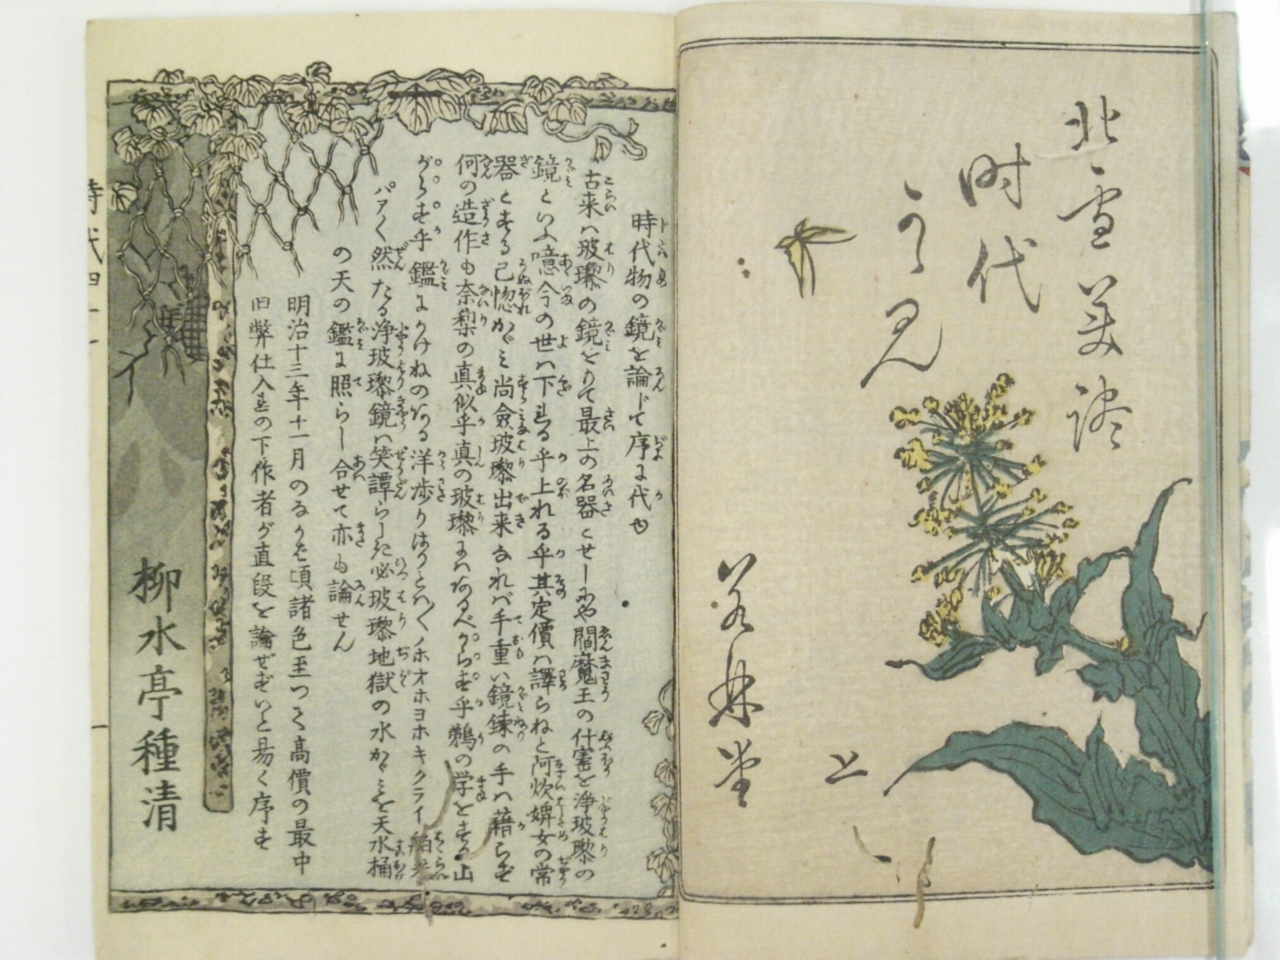 北雪美談
時代
かゞ見
若林堂
上
時代物の鏡を論じて序に代ゆ
古来ハ玻瓈の鏡をもて最上の名器とせしにや閻魔王の什宝を浄玻瓈の
鏡といふ噫今の世ハ下る乎上れる乎其定價ハ譯らねと阿炊婢女の常
器とする己惚かゞミ尚僉玻瓈出来なれバ手重い鏡錬の手ハ藉らず
何の造作も奈梨の真似乎真の玻瓈にハあるべからず乎鵜の学をする山
がらす乎鑑にかけねのある洋歩りはりとハ
パアく然たる浄玻瓈鏡ハ笑譚らしき必玻瓈地獄の水かゞミを天水桶
の天の鑑に照らし合せて亦も論せん
明治十三年十一月のなかば頃諸色至つて高價の最中
旧弊仕入の下作者が直段を論ぜずいと易く序す
柳水亭種清
時代四十一